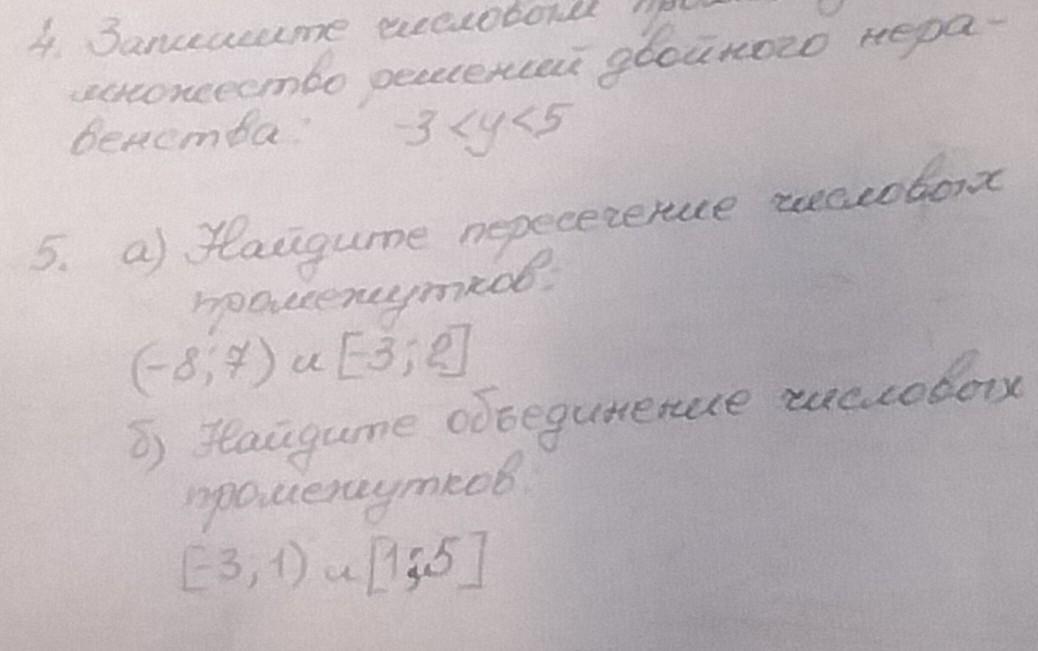 4. Запишите числовым
множество решений двойного нера-
венства: -3 < y < 5
5. а) Найдите пересечение числовых
промежутков:
(-8; 7) и [-3; 2]
б) Найдите объединение числовых
промежутков:
[-3; 1) и [1; 5]